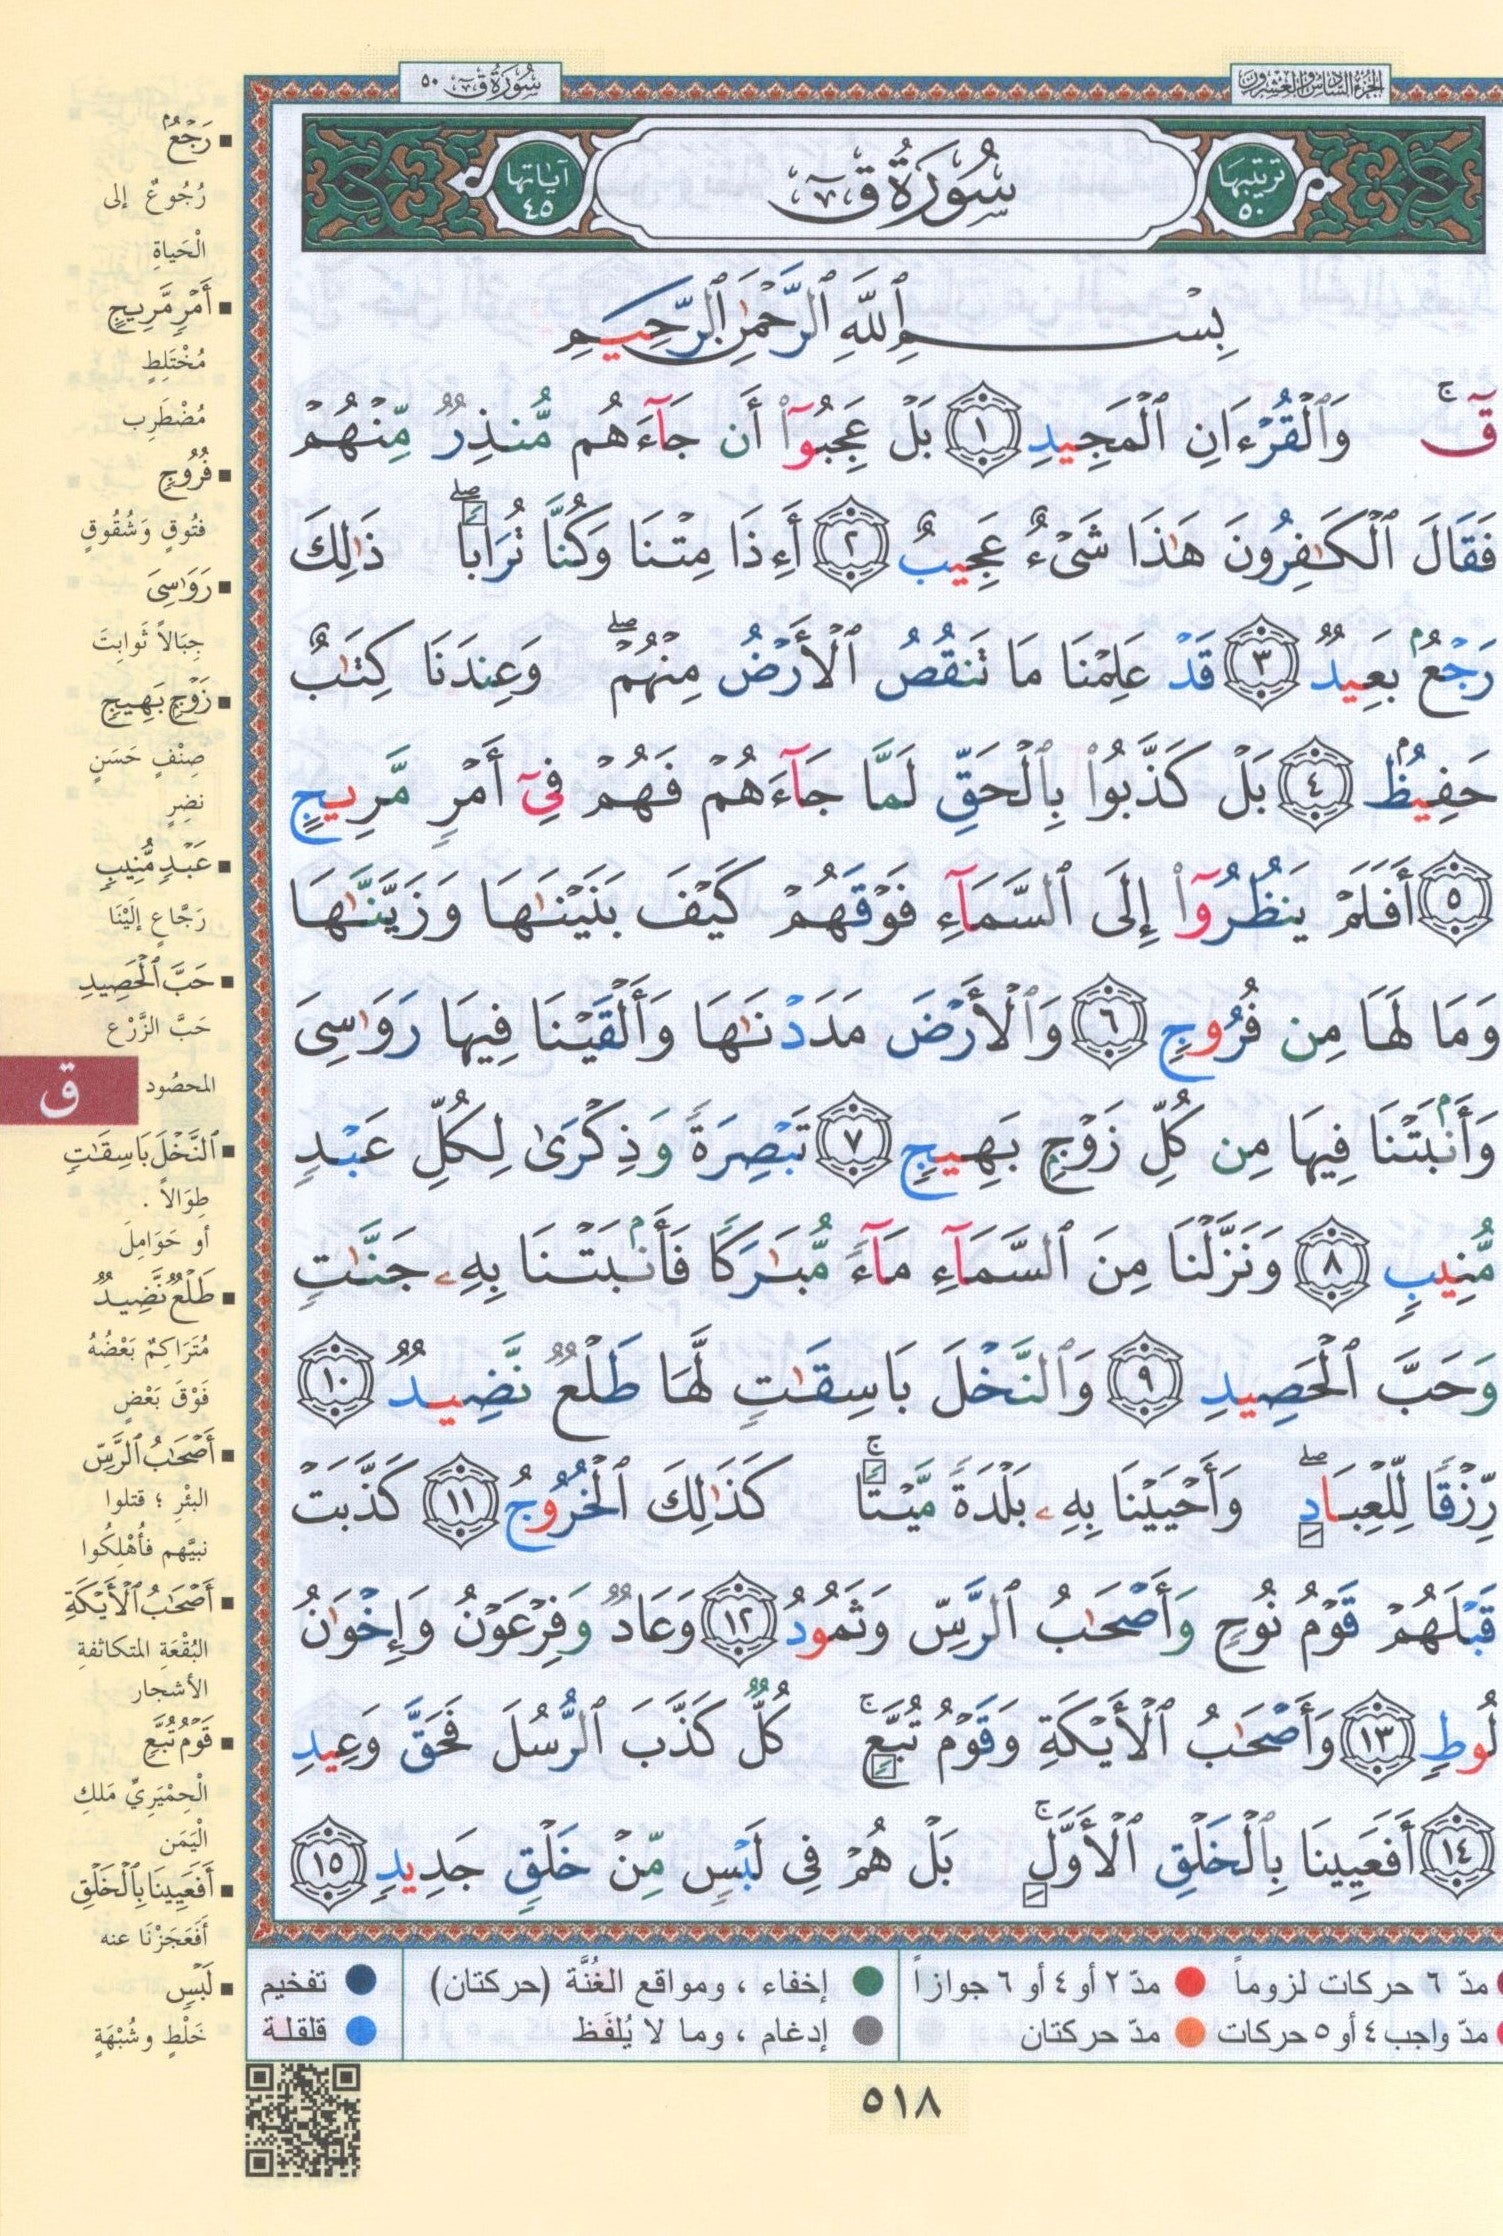 الجزء السادس والعشرون
سُورَةُ قٓ ٥٠
ترتيبها ٥٠
سُورَةُ قٓ
آياتها ٤٥
بِسْمِ ٱللَّهِ ٱلرَّحْمَٰنِ ٱلرَّحِيمِ
قٓ ۚ وَٱلْقُرْءَانِ ٱلْمَجِيدِ ١ بَلْ عَجِبُوٓا۟ أَن جَآءَهُم مُّنذِرٌ مِّنْهُمْ
فَقَالَ ٱلْكَٰفِرُونَ هَٰذَا شَىْءٌ عَجِيبٌ ٢ أَءِذَا مِتْنَا وَكُنَّا تُرَابًا ۖ ذَٰلِكَ
رَجْعٌۢ بَعِيدٌ ٣ قَدْ عَلِمْنَا مَا تَنقُصُ ٱلْأَرْضُ مِنْهُمْ ۖ وَعِندَنَا كِتَٰبٌ
حَفِيظٌۢ ٤ بَلْ كَذَّبُوا۟ بِٱلْحَقِّ لَمَّا جَآءَهُمْ فَهُمْ فِىٓ أَمْرٍ مَّرِيجٍ
٥ أَفَلَمْ يَنظُرُوٓا۟ إِلَى ٱلسَّمَآءِ فَوْقَهُمْ كَيْفَ بَنَيْنَٰهَا وَزَيَّنَّٰهَا
وَمَا لَهَا مِن فُرُوجٍ ٦ وَٱلْأَرْضَ مَدَدْنَٰهَا وَأَلْقَيْنَا فِيهَا رَوَٰسِىَ
وَأَنۢبَتْنَا فِيهَا مِن كُلِّ زَوْجٍۭ بَهِيجٍ ٧ تَبْصِرَةً وَذِكْرَىٰ لِكُلِّ عَبْدٍ
مُّنِيبٍ ٨ وَنَزَّلْنَا مِنَ ٱلسَّمَآءِ مَآءً مُّبَٰرَكًا فَأَنۢبَتْنَا بِهِۦ جَنَّٰتٍ
وَحَبَّ ٱلْحَصِيدِ ٩ وَٱلنَّخْلَ بَاسِقَٰتٍ لَّهَا طَلْعٌ نَّضِيدٌ ١٠
رِّزْقًا لِّلْعِبَادِ ۖ وَأَحْيَيْنَا بِهِۦ بَلْدَةً مَّيْتًا ۚ كَذَٰلِكَ ٱلْخُرُوجُ ١١ كَذَّبَتْ
قَبْلَهُمْ قَوْمُ نُوحٍ وَأَصْحَٰبُ ٱلرَّسِّ وَثَمُودُ ١٢ وَعَادٌ وَفِرْعَوْنُ وَإِخْوَٰنُ
لُوطٍ ١٣ وَأَصْحَٰبُ ٱلْأَيْكَةِ وَقَوْمُ تُبَّعٍ ۚ كُلٌّ كَذَّبَ ٱلرُّسُلَ فَحَقَّ وَعِيدِ
١٤ أَفَعَيِينَا بِٱلْخَلْقِ ٱلْأَوَّلِ ۚ بَلْ هُمْ فِى لَبْسٍ مِّنْ خَلْقٍ جَدِيدٍ ١٥
رَجْعٌۢ
رُجُوعٌ إلى
الْحَياةِ
أَمْرٍ مَّرِيجٍ
مُخْتَلِطٍ
مُضْطَرِب
فُرُوجٍ
فتُوقٍ وَشُقُوقٍ
رَوَٰسِىَ
جِبَالاً ثَوابِتَ
زَوْجٍ بَهِيجٍ
صِنْفٍ حَسَنٍ
نضِرٍ
عَبْدٍ مُّنِيبٍ
رَجَّاعٍ إلَيْنَا
حَبَّ ٱلْحَصِيدِ
حَبَّ الزَّرْع
المحصُود
ق
ٱلنَّخْلَ بَاسِقَٰتٍ
طِوَالاً .
أو حَوَامِلَ
طَلْعٌ نَّضِيدٌ
مُتَرَاكِمٌ بَعْضُهُ
فَوْقَ بَعْضٍ
أَصْحَٰبُ ٱلرَّسِّ
البئْرِ ؛ قتلوا
نبيَّهم فأُهْلِكُوا
أَصْحَٰبُ ٱلْأَيْكَةِ
البُقْعَةِ المتكاثفةِ
الأشجار
قَوْمُ تُبَّعٍ
الْحِمْيَرِيِّ مَلكِ
الْيَمَن
أَفَعَيِينَا بِٱلْخَلْقِ
أَفَعَجَزْنَا عنه
لَبْسٍ
خَلْطٍ وشُبْهَةٍ
مدّ ٦ حركات لزوماً
مدّ ٢ أو ٤ أو ٦ جوازاً
إخفاء ، ومواقع الغُنَّة (حركتان)
تفخيم
مدّ واجب ٤ أو ٥ حركات
مدّ حركتان
إدغام ، وما لا يُلفَظ
قلقلة
٥١٨